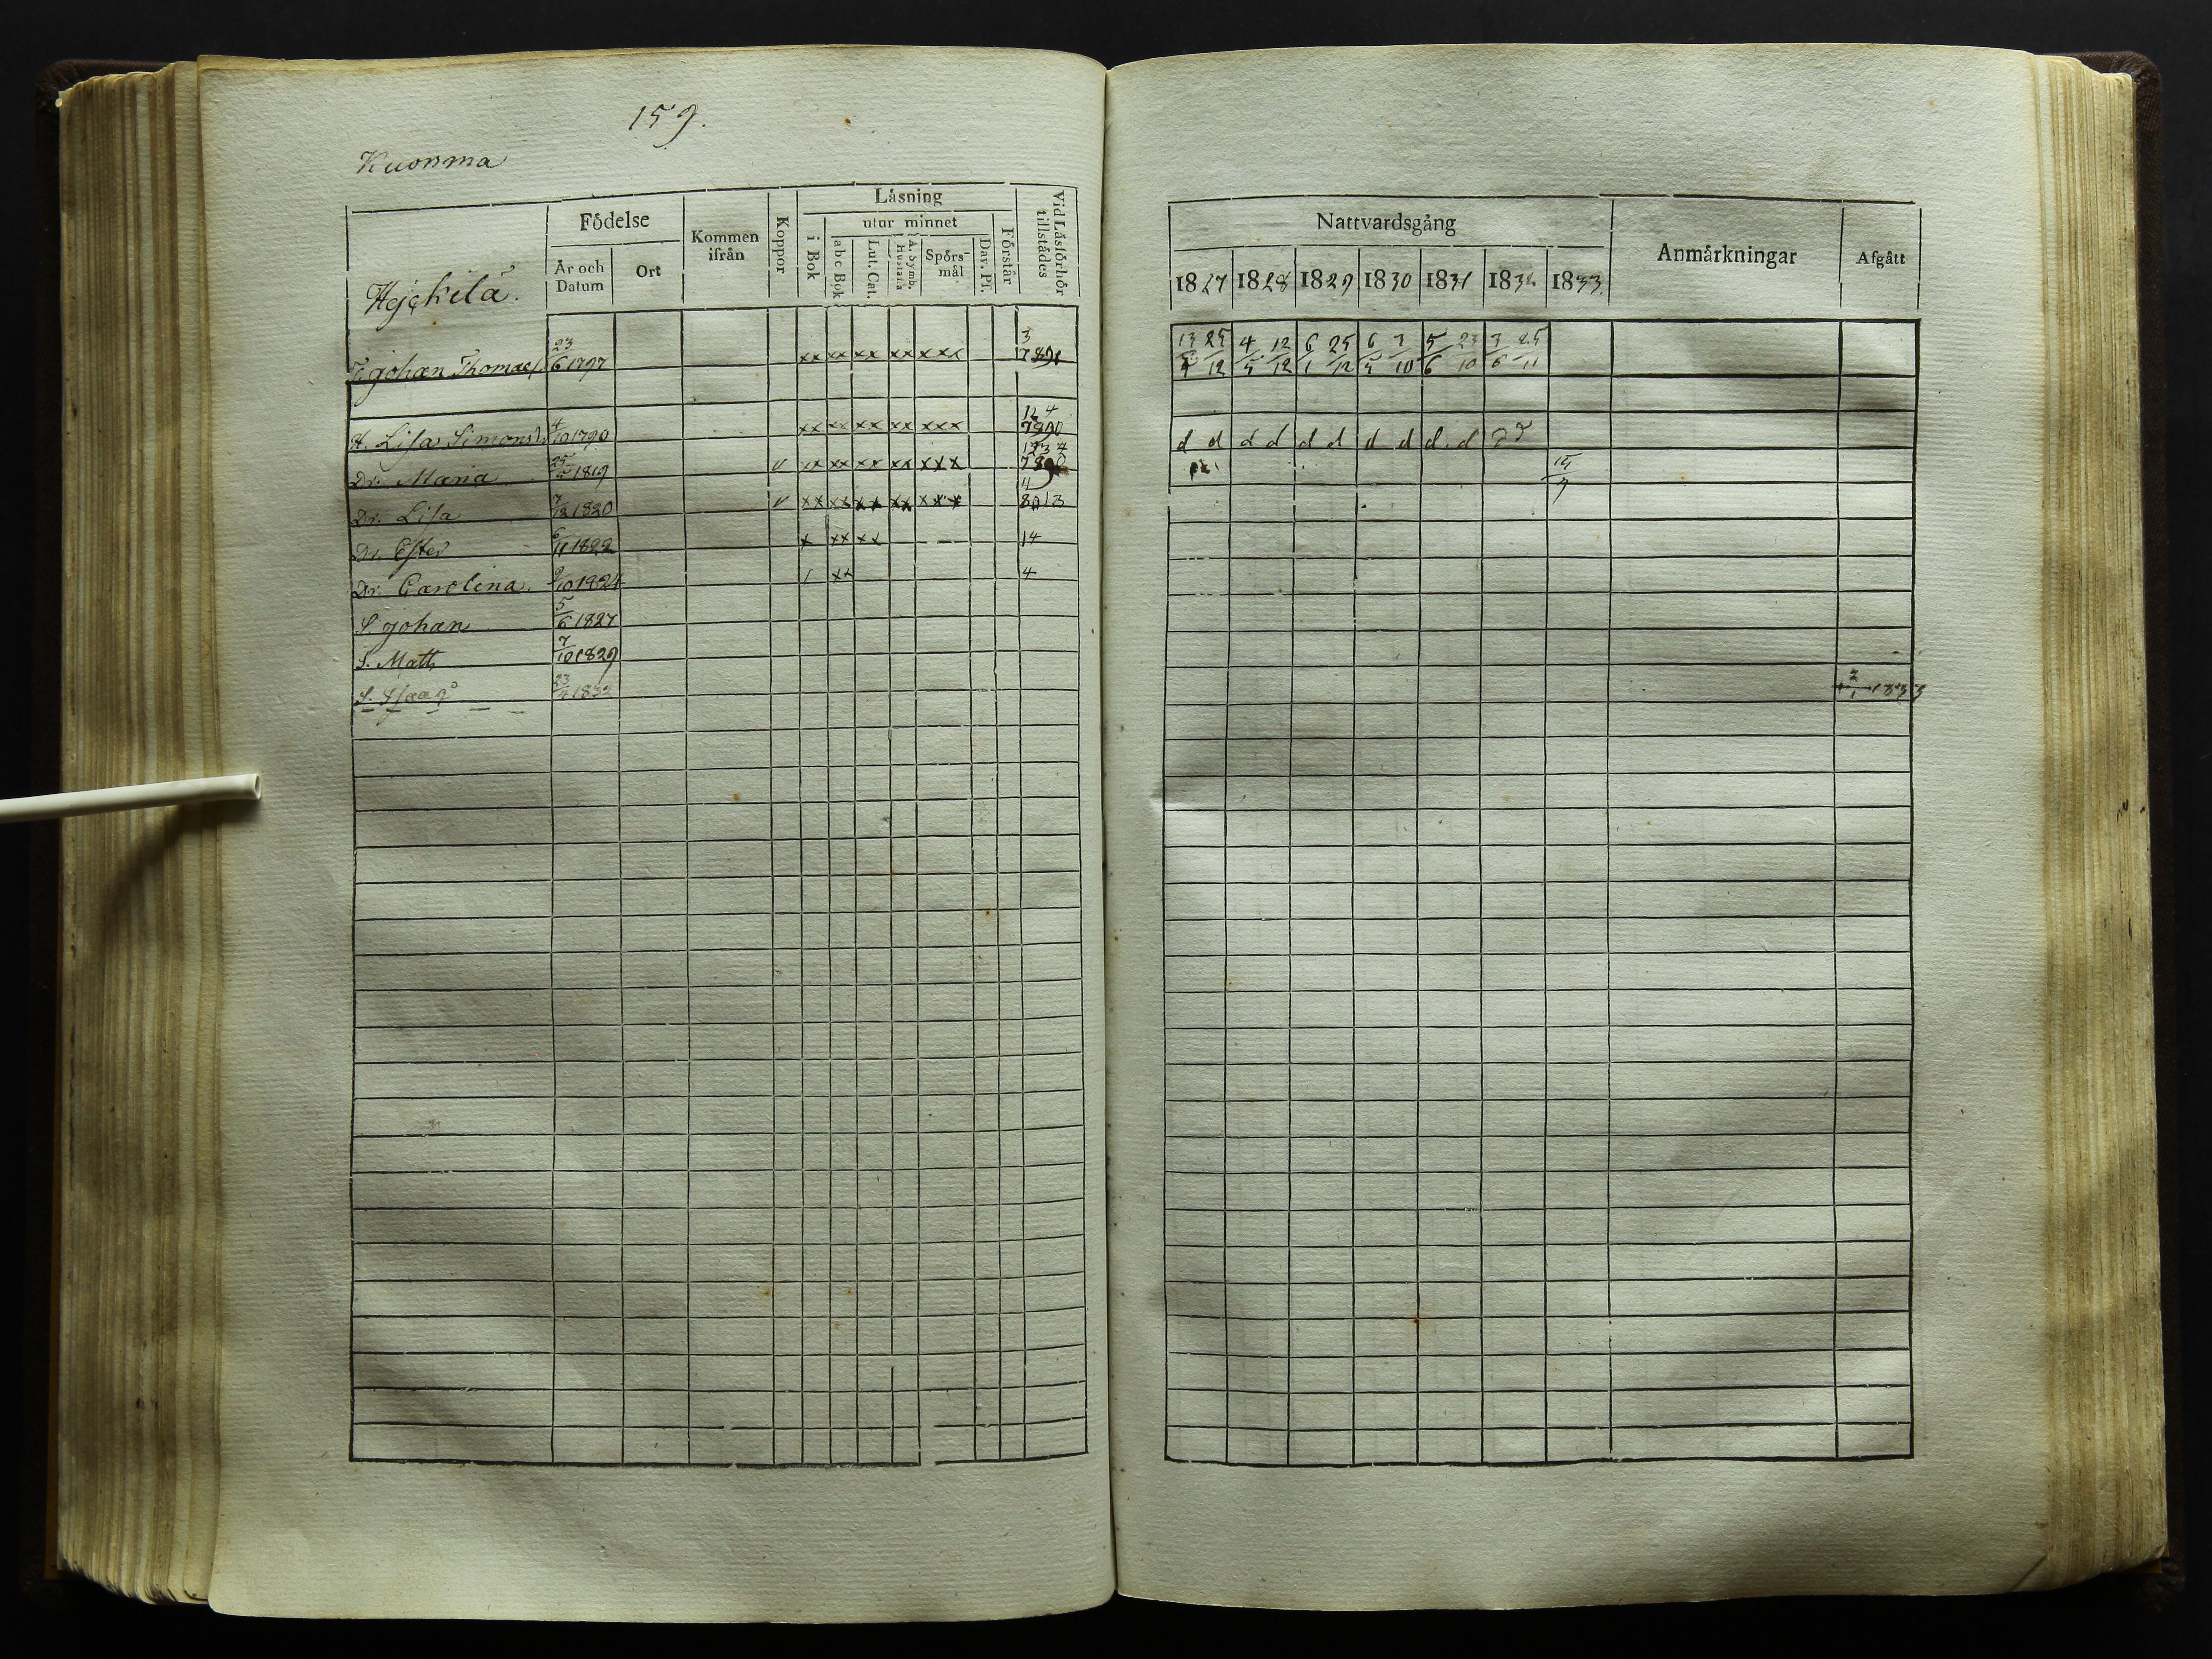 159.
Kuonma
Hejckilä.
Födelse
År och Datum
Ort
Kommen ifrån
Koppor
Läsning
i Bok
utur minnet
abc Bok
Lut. Cat.
A. Symb. Hustafla
Spörs-mål
Dav. Pf.
Förstår
Vid Läsförhör tillstädes
Johan Thomaes. 23/6 1797 xx xx xx xx xxx 3
H. Lisa Simonsd. 4/10 1790 xx xx xx xx xxx 12 4 7890
Dr. Maria 1819 v xx xx xx xx xxx 1234
Dr. Lisa 7/12 1820 v xx xx xx xx xxx 11
Dr. Ester 6/11 1822 x xx xx 14
Dr. Carolina. 9/10 1824 / xx 4
S. Johan 5/6 1827
S. Matts 7/10 1829
S. Isaac 23/4 1832
Nattvardsgång
1827 1828 1829 1830 1831 1832 1833
Anmärkningar
Afgått
25/12 4/5 12/12 6/1 25/12 6/5 3/10 5/6 23/10 3/6 25/11
d d d d d d d d d. d d d
15/7
2/1 1833